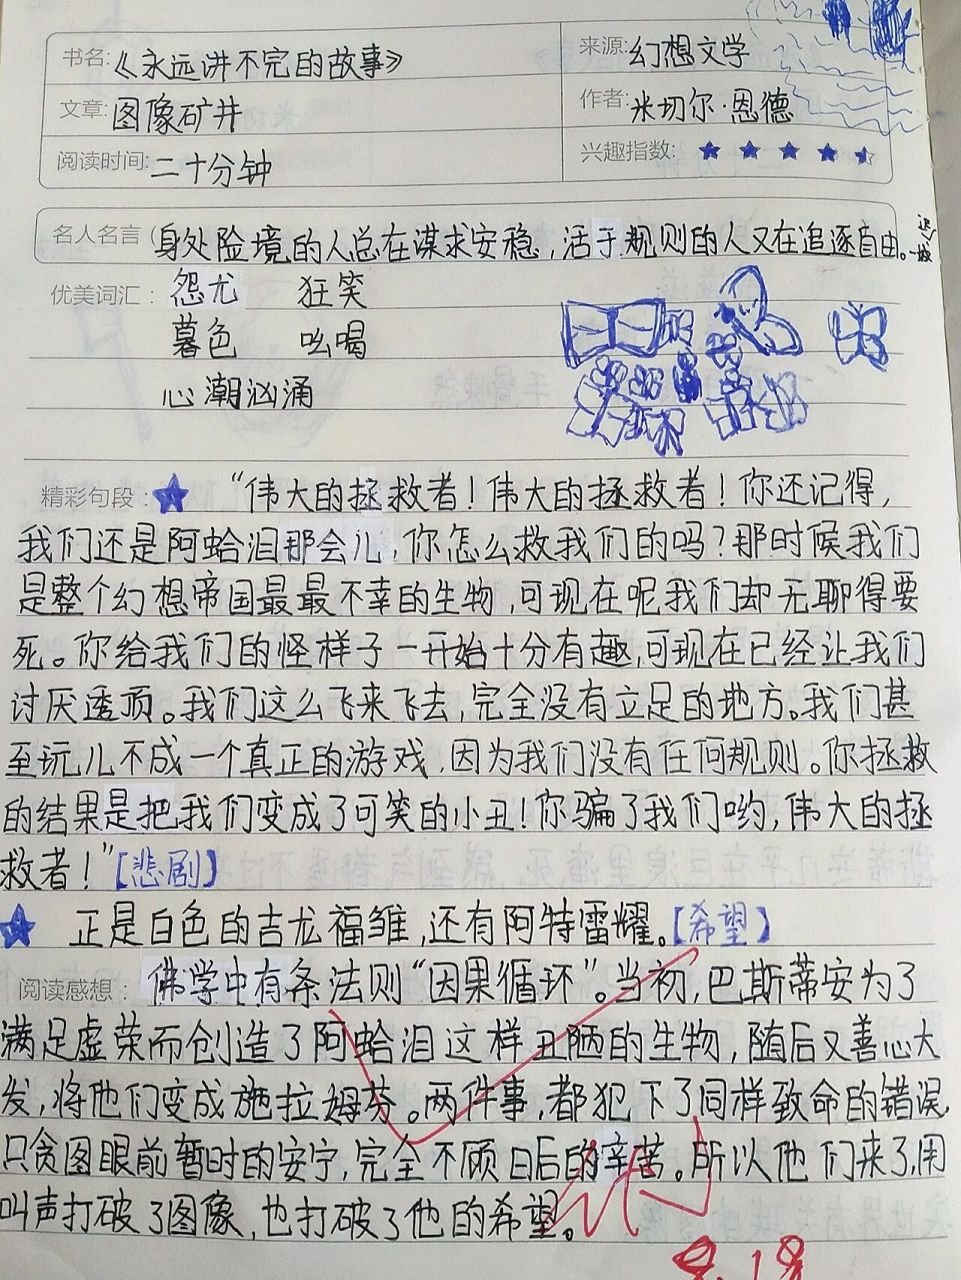 书名:《永远讲不完的故事》
来源:幻想文学
文章:图像矿井
作者:米切尔·恩德
阅读时间:二十分钟
兴趣指数:
名人名言(身处险境的人总在谋求安稳,活于规则的人又在追逐自由。
优美词汇: 怨尤 狂笑
暮色 吆喝
心潮汹涌
精彩句段: “伟大的拯救者!伟大的拯救者!你还记得,
我们还是阿蛤泪那会儿,你怎么救我们的吗?那时候我们
是整个幻想帝国最最不幸的生物,可现在呢我们却无聊得要
死。你给我们的怪样子一开始十分有趣,可现在已经让我们
讨厌透顶。我们这么飞来飞去,完全没有立足的地方。我们甚
至玩儿不成一个真正的游戏,因为我们没有任何规则。你拯救
的结果是把我们变成了可笑的小丑!你骗了我们哟,伟大的拯
救者!”【悲剧】
正是白色的吉龙福雏,还有阿特雷耀。【希望】
阅读感想: 佛学中有条法则“因果循环”。当初,巴斯蒂安为了
满足虚荣而创造了阿蛤泪这样丑陋的生物,随后又善心大
发,将他们变成施拉姆芬。两件事,都犯下了同样致命的错误,
只贪图眼前暂时的安宁,完全不顾日后的辛苦。所以他们来了,用
叫声打破了图像,也打破了他的希望。
9.18